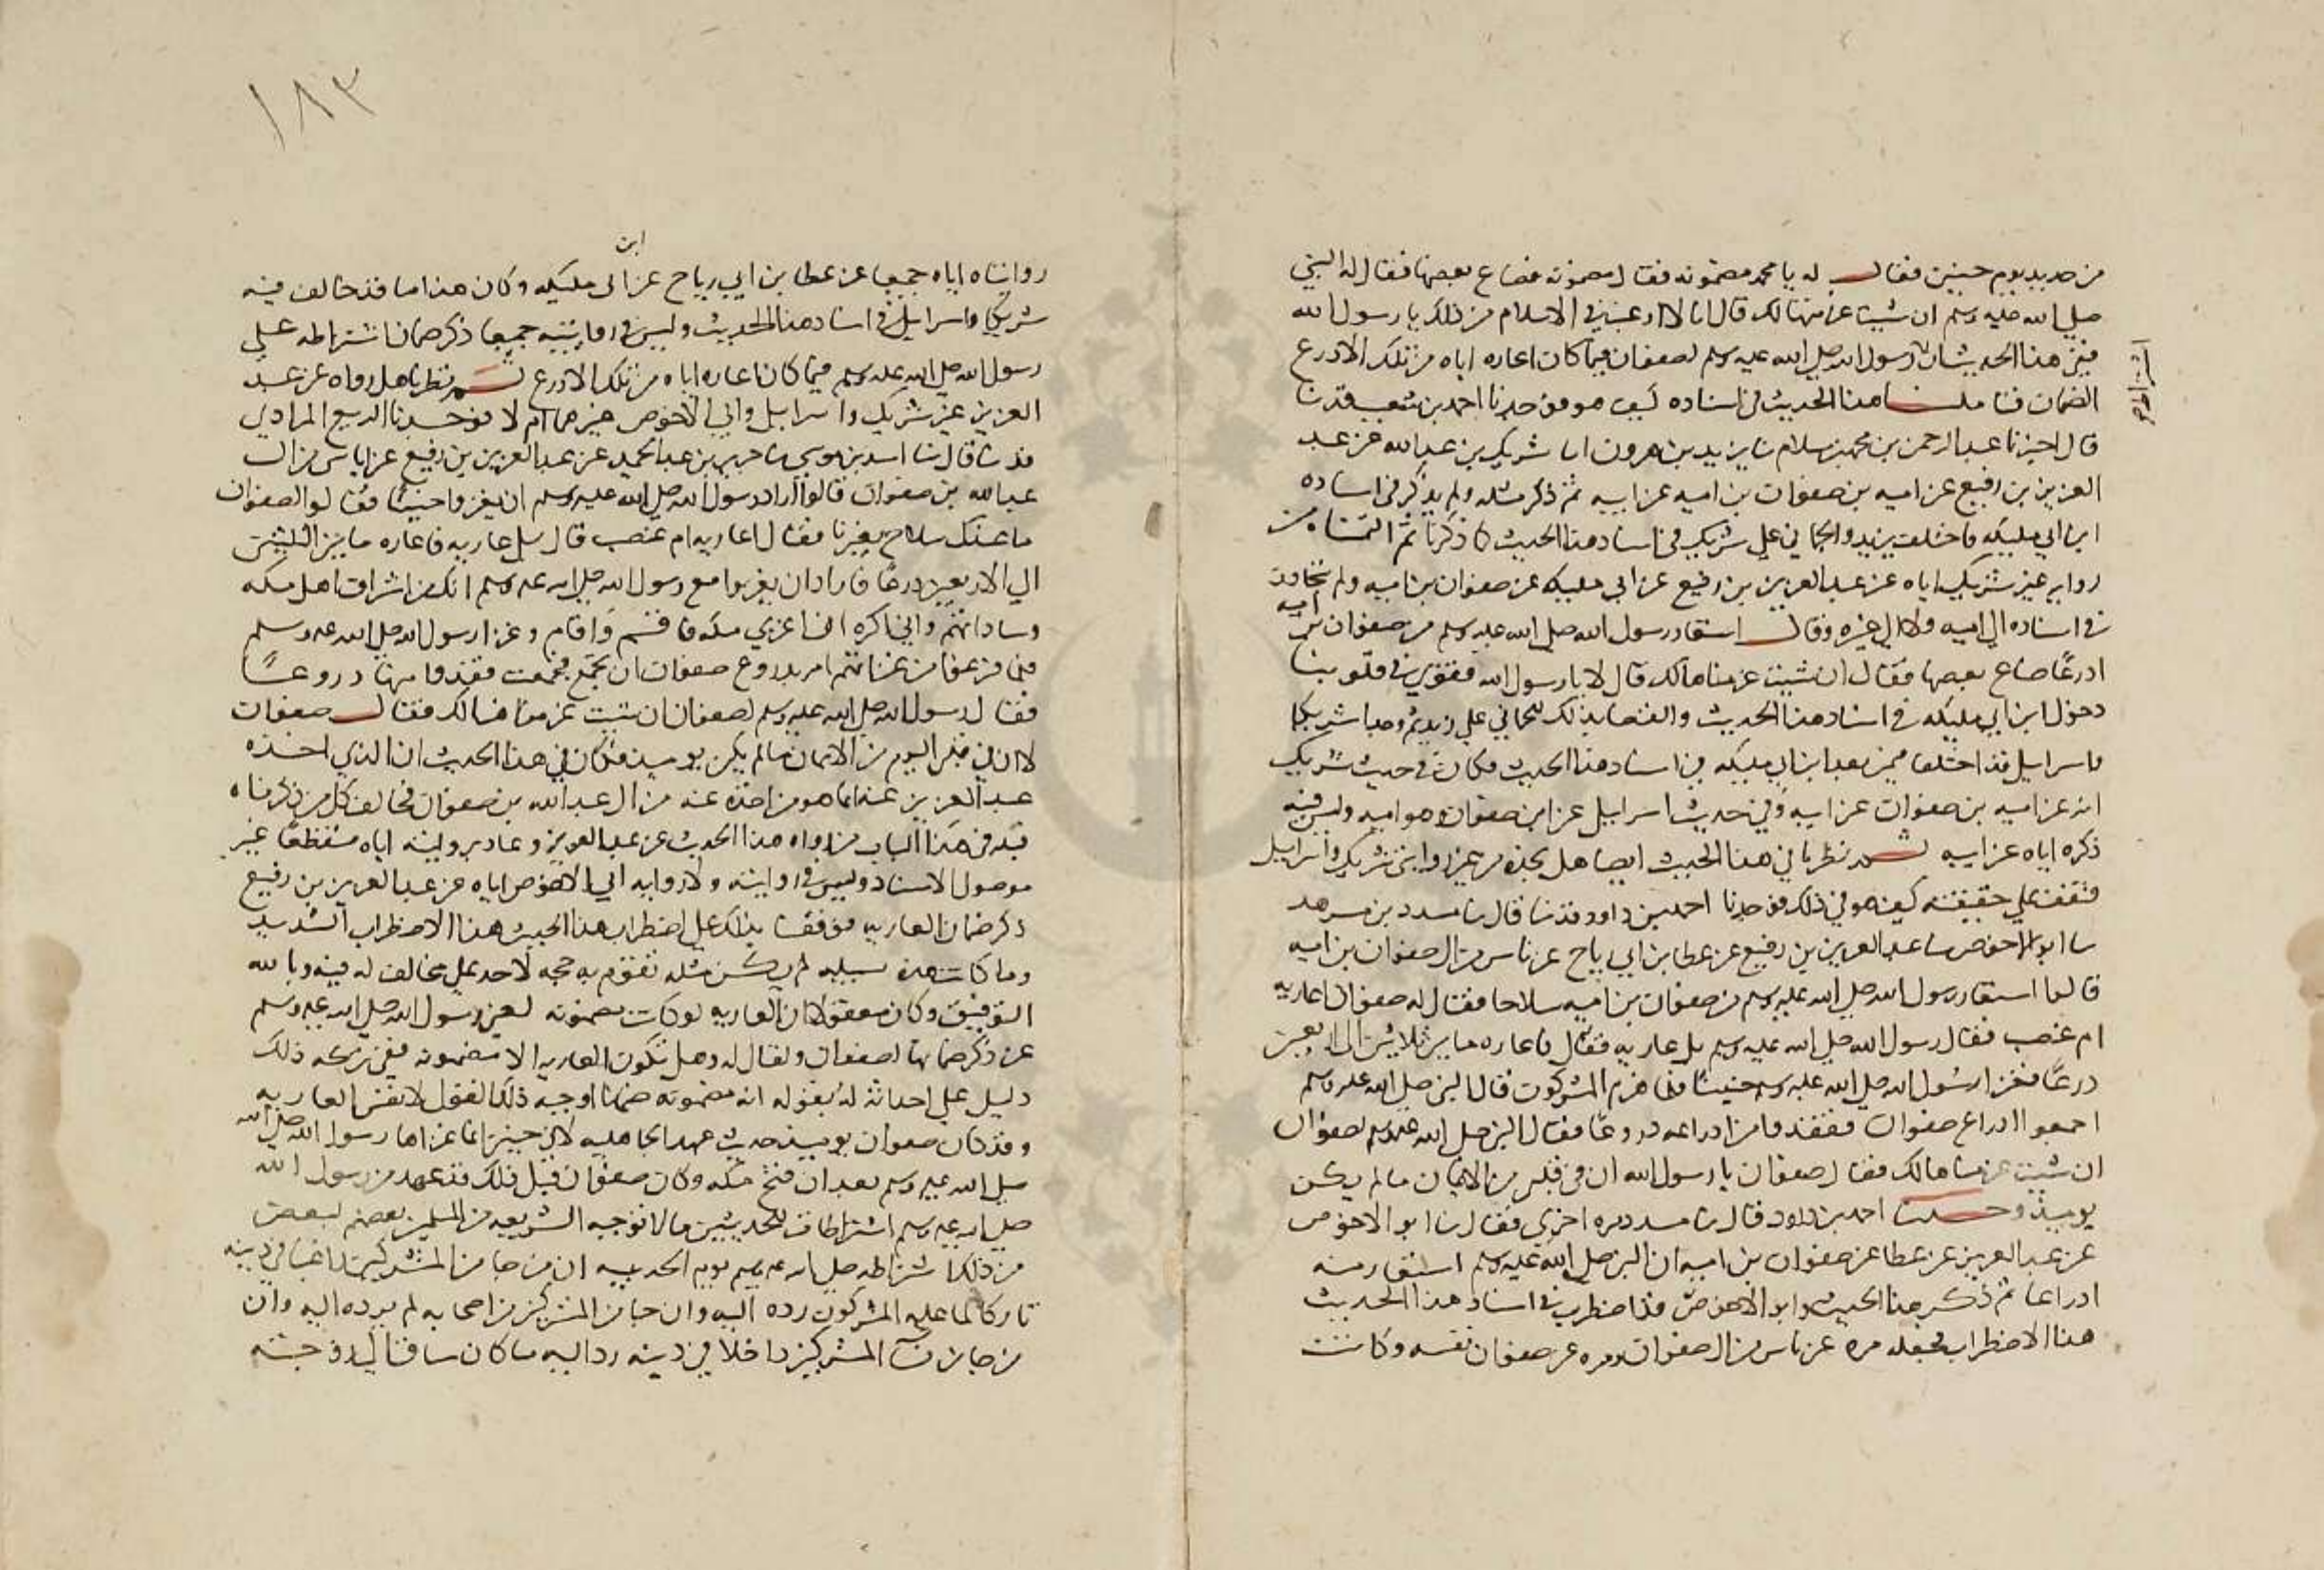 من حديد يوم حنين فقال له يا محمد مضمونه فقال مضمونه فضاع بعضها فقال له النبي
صلى الله عليه وسلم ان شيت غرمنها لك قال انا لا ارغب في الاسلام من ذلك يا رسول الله
ففي هذا الحديث رسول الله صلى الله عليه وسلم لصفوان فيما كان اعاره اياه من تلك الادرع
اشتراط
الضمان فتاملنا هذا الحديث في اسناده كيف هو فوجدنا احمد بن شعيب قد نا
قال اخبرنا عبد الرحمن بن محمد بن سلام نا يزيد بن هرون انا شريك بن عبد الله عن عبد
العزيز بن رفيع عن اميه بن صفوان بن اميه عن ابيه ثم ذكر مثله ولم يذكر في اسناده
ابن ابي مليكه فاختلف يزيد والحماني على شريك في اسناد هذا الحديث كما ذكرنا ثم التمسناه من
روايه غير شريك اياه عن عبد العزيز بن رفيع عن ابي مليكه عن صفوان بن اميه ولم تجاوز
في اسناده الى اميه ولا الى غيره وقال استعار رسول الله صلى الله عليه وسلم من صفوان بن اميه
ادرعا ضاع بعضها فقال ان شيت غرمناها لك قال لا يا رسول الله فقوي في قلوبنا
دخول ابن ابي مليكه في اسناد هذا الحديث والقضا بذلك للحماني على يزيد ثم وجدنا شريكا
واسرايل قد اختلفا فيمن بعد ابن ابي مليكه في اسناد هذا الحديث فكان في حديث شريك
انه عن اميه بن صفوان عن ابيه وفي حديث اسرايل عن ابن صفوان وهو اميه وليس فيه
ذكره اياه عن ابيه ثم نظرنا في هذا الحديث ايضا هل نجده من غير روايتي شريك واسرايل
فنقف على حقيقته كيف هو في ذلك فوجدنا احمد بن داود قد نا قال نا مسدد بن مسرهد
نا ابو الاحوص نا عبد العزيز بن رفيع عن عطا بن ابي رباح عن ناس من ال صفوان بن اميه
قالوا استعار رسول الله صلى الله عليه وسلم من صفوان بن اميه سلاحا فقال له صفوان اعاريه
ام غصب فقال رسول الله صلى الله عليه وسلم بل عاريه فقال فاعاره ما بين ثلاثين الى اربعين
درعا فغزا رسول الله صلى الله عليه وسلم حنينا فلما هزم المشركون قال النبي صلى الله عليه وسلم
اجمعوا ادراع صفوان ففقدوا من ادراعه دروعا فقال النبي صلى الله عليه وسلم لصفوان
ان شيت غرمناها لك فقال صفوان يا رسول الله ان في قلبي من الايمان ما لم يكن
يوميذ وحدثنا احمد بن داود قال نا مسدد مره اخرى فقال نا ابو الاحوص
عن عبد العزيز عن عطا عن صفوان بن اميه ان النبي صلى الله عليه وسلم استعار منه
ادراعا ثم ذكر هذا الحديث وابو الاحوص قد اضطرب في اسناد هذا الحديث
هذا الاضطراب فجعله مره عن ناس من ال صفوان ومره عن صفوان نفسه وكانت
١٨٣
ابن
روايتاه اياه جميعا عن عطا بن ابي رباح عن ابي مليكه وكان هذا مما قد خالف فيه
شريكا واسرايل في اسناد هذا الحديث وليس في روايتيه جميعا ذكر ضمان اشتراطه على
رسول الله صلى الله عليه وسلم فيما كان اعاره اياه من تلك الادرع ثم نظرنا هل رواه عن عبد
العزيز غير شريك واسرايل وابي الاحوص غيرهم ام لا فوجدنا الربيع المرادي
قد نا قال نا اسد بن موسى نا جرير بن عبد الحميد عن عبد العزيز بن رفيع عن اناس من ال
عبد الله بن صفوان قالوا اراد رسول الله صلى الله عليه وسلم ان يغزو حنينا فقالوا لصفوان
ما عندك سلاح يعيرنا فقال اعاريه ام غصب قال بل عاريه فاعاره ما بين الثلثين
الى الاربعين درعا فاراد ان يغزوا مع رسول الله صلى الله عليه وسلم انك من اشراف اهل مكه
وساداتهم واني اكره اغزي مكه فاقسم واقام وغزا رسول الله صلى الله عليه وسلم
فلما فرغوا من غزاتهم امر بدروع صفوان ان تجمع فجمعت ففقدوا منها دروعا
فقال رسول الله صلى الله عليه وسلم لصفوان ان شيت غرمناها لك فقال صفوان
لا ان في قلبي اليوم من الايمان ما لم يكن يوميذ فكان في هذا الحديث ان الذي اخذه
عبد العزيز عنه انما هو من اخذه عنه من ال عبد الله بن صفوان فخالف كل من ذكرناه
قبله في هذا الباب من رواه هذا الحديث عن عبد العزيز وعاد بروايته اياه منقطعا غير
موصول الاسناد وليس في روايته ولا روايه ابي الاحوص اياه عن عبد العزيز بن رفيع
ذكر ضمان العاريه فوقفنا بذلك على اضطراب هذا الحديث هذا الاضطراب الشديد
وما كانت هذه سبيله لم يكن مثله تقوم به حجه لاحد على مخالف له فيه وبالله
التوفيق وكان معقولا ان العاريه لو كانت مضمونه لغني رسول الله صلى الله عليه وسلم
عن ذكر ضمانها لصفوان ولقال له وهل تكون العاريه الا مضمونه ففي تركه ذلك
دليل على احداثه له بقوله انه مضمونه ضمانا اوجبه ذلك القول لا نفس العاريه
وقد كان صفوان يوميذ حديث عهد الجاهليه لان حنين انما غزاها رسول الله صلى الله
صلى الله عليه وسلم بعد ان فتح مكه وكان صفوان قبل ذلك قد عهد من رسول الله
صلى الله عليه وسلم اشتراطات للحديثين ما لا توجبه الشريعه من المسلمين بعضهم لبعض
من ذلك اشتراطه صلى الله عليه وسلم يوم الحديبيه ان من جا من المشركين راغبا في دينه
تاركا لما عليه المشركون رده اليه وان جا من المشركين من اصحابه لم يرده اليه وان
من جا من المشركين داخلا في دينه رد اليه ما كان ساقه الى زوجته